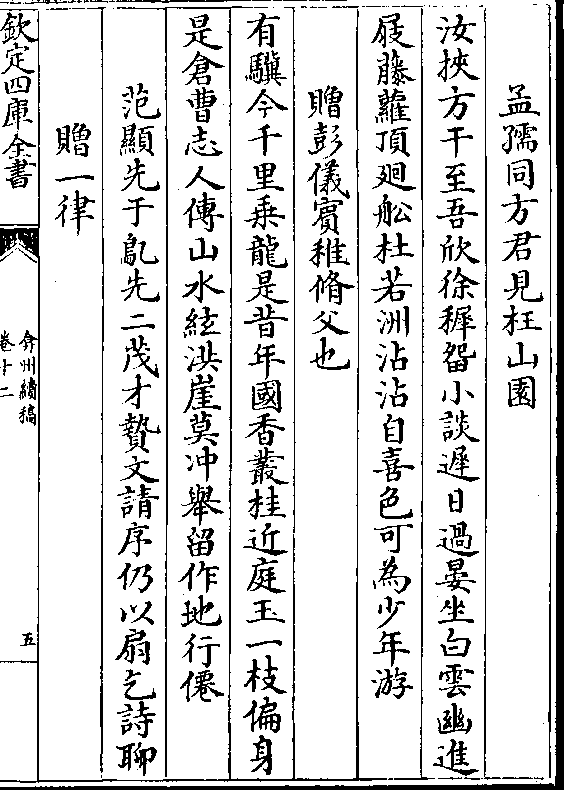 孟孺同方君見枉山園
汝挾方干至吾欣徐穉留小談遲日過晏坐白雲幽進
屐藤蘿頂廻舩杜若洲沾沾自喜色可為少年游
贈彭儀賓稚脩父也
有驥今千里乗龍是昔年國香叢桂近庭玉一枝偏身
是倉曹志人傳山水絃洪崖莫冲舉留作地行僊
范顯先于鳬先二茂才贄文請序仍以扇乞詩聊
贈一律
欽定四庫全書
弇州續稿
卷十二
五